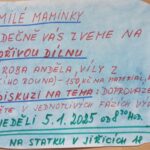 MILÉ MAMINKY
DEČNĚ VÁS ZVEME NA
OŘIVOU DÍLNU
ROBA ANDĚLA, VÍLY Z
ROUNA) - 150 KČ NA MATERIÁL
DISKUZI NA TÉMA: DOPROVÁZE
TĚTE V JEDNOTLIVÝCH FÁZÍCH
NEDĚLI 5.1.2025 OD
NA STATKU V JIŘICÍCH